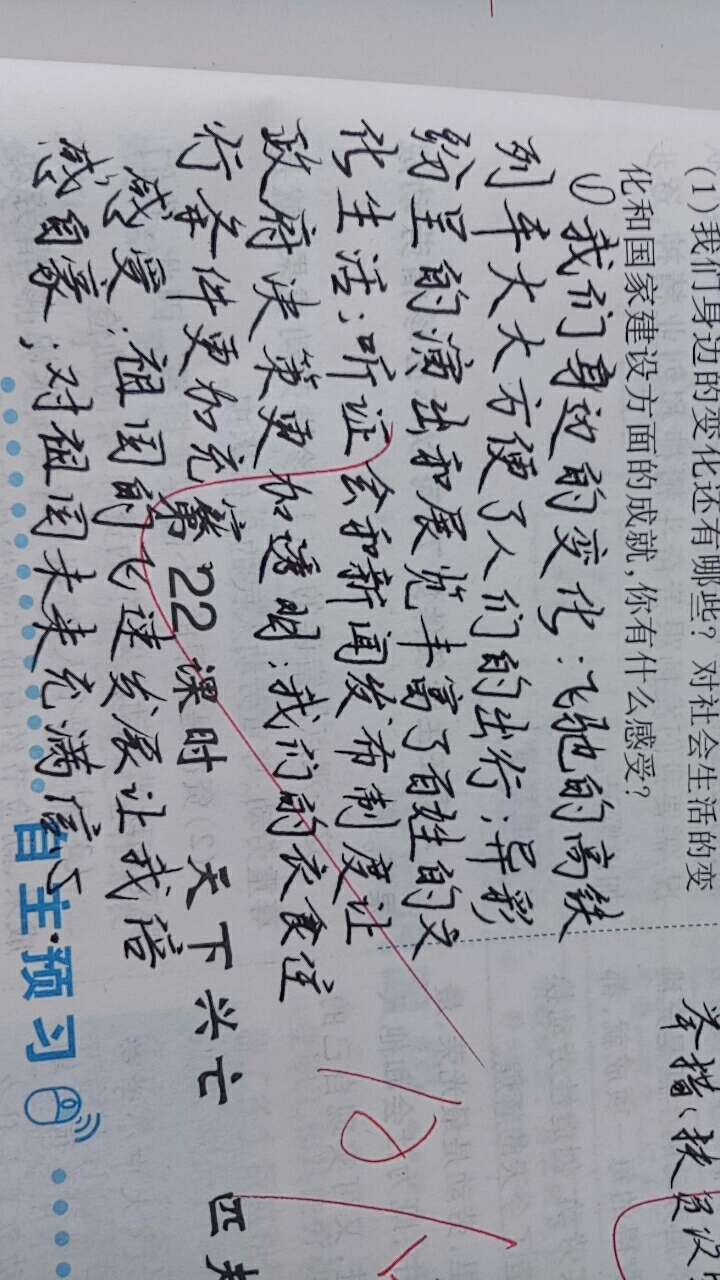 (1)我们身边的变化还有哪些?对社会生活的变
化和国家建设方面的成就,你有什么感受?
(1)我们身边的变化:飞驰的高铁
列车大大方便了人们的出行;异彩
纷呈的演出和展览丰富了百姓的文
化生活;听证会和新闻发布制度让
政府决策更加透明;我们的衣食住
行条件更加充
感受:祖国的飞速发展让我倍
感自豪,对祖国未来充满信心
第22课时 天下兴亡 匹
自主·预习
举措、扶贫
10